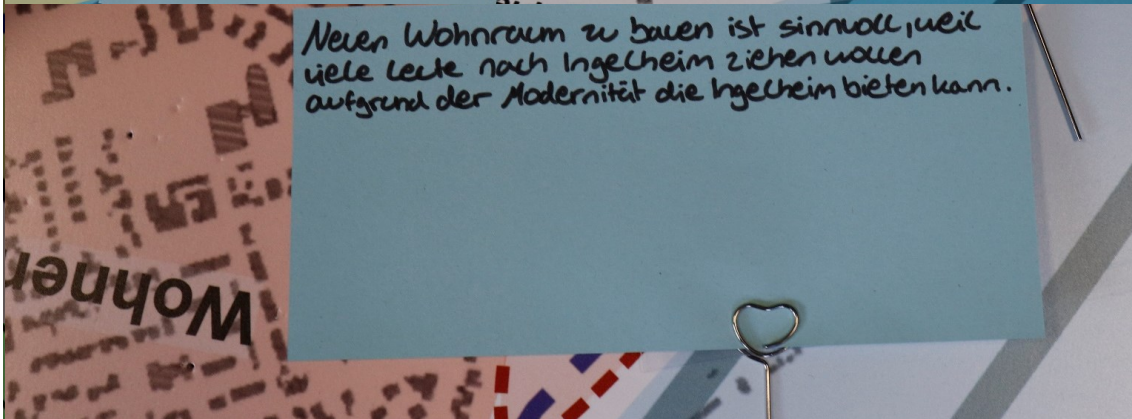 Neuen Wohnraum zu bauen ist sinnvoll, weil
viele Leute nach Ingelheim ziehen wollen
aufgrund der Modernität die Ingelheim bieten kann.
Wohnen